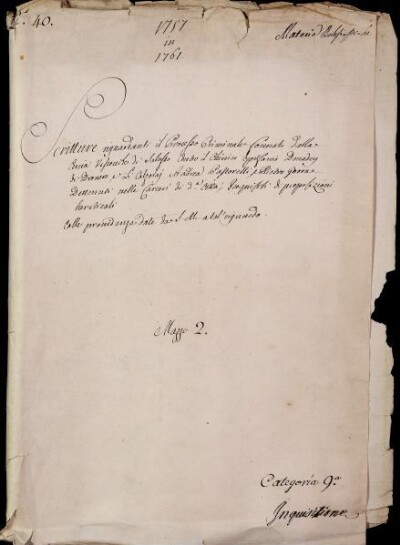 N.° 40.
1757
in
1761
Materie
Scritture riguardanti il Processo Criminale formato dalla
Curia Vescovile di Saluzzo contro il Chierico
di Dronero e li Andrea Pastorelli, e Pietro
Detenuti nelle Carceri di d.a Città, Inquisiti di proposizioni
hereticali
colle providenze date da S. M. a tal riguardo.
Mazzo 2.
Categoria 9.a
Inquisizione